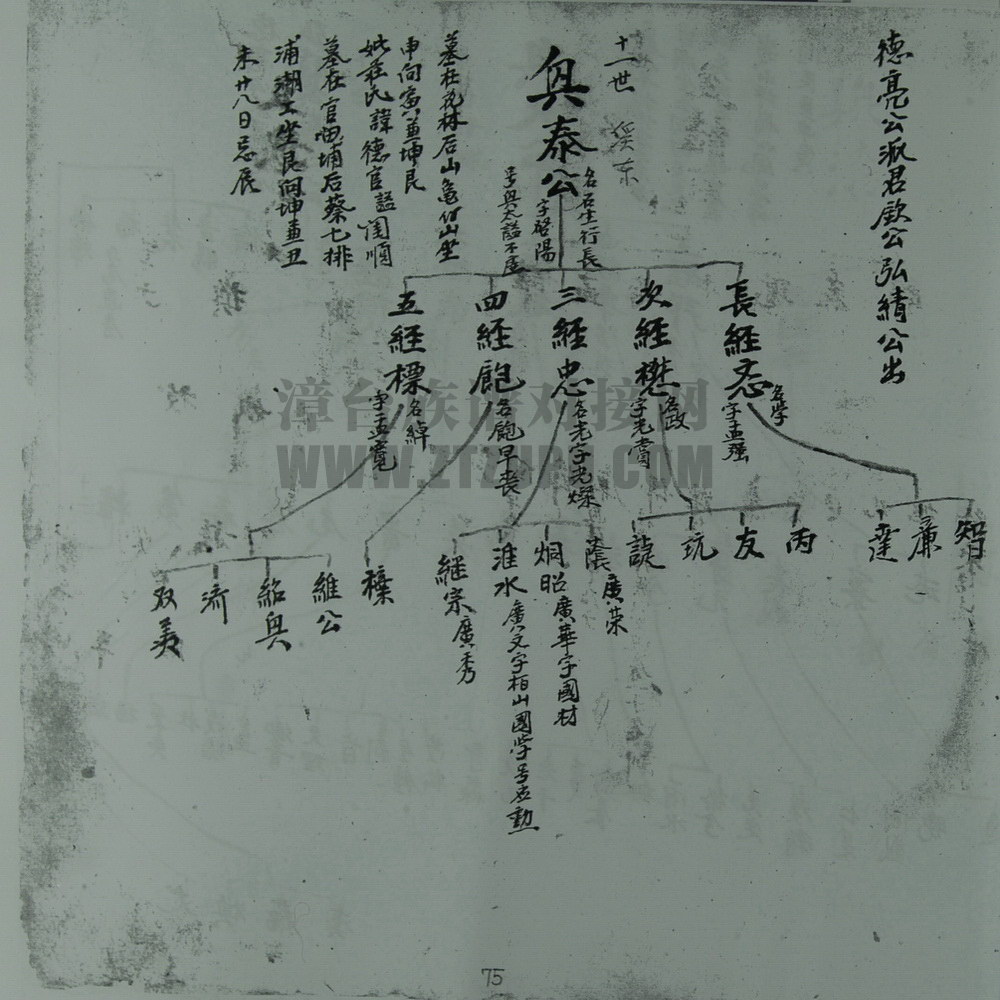 德亮公派君欽公弘績公出
十一世
溪东
與泰公
名名生行長
字啓陽
号與太謚不虛
墓在苑林后山龜仔山坐
申向寅兼坤艮
妣莊氏諱德官謚閨順
墓在官田埔后蔡七排
浦湖工坐艮向坤兼丑
未廿八日忌辰
長經忞
名學
字孟强
次經懋
名政
字光當
三經忠
名光字光燦
四經飽
名飽早喪
五經標
名綽
字孟寬
智
廉
達
丙
友
玩
蔭廣荣
炯昭廣華字國材
淮水廣文字柏山國学号岌勳
継宗廣秀
維公
紹與
流
双美
漳台族谱对接网
WWW.ZTZUPU.COM
75